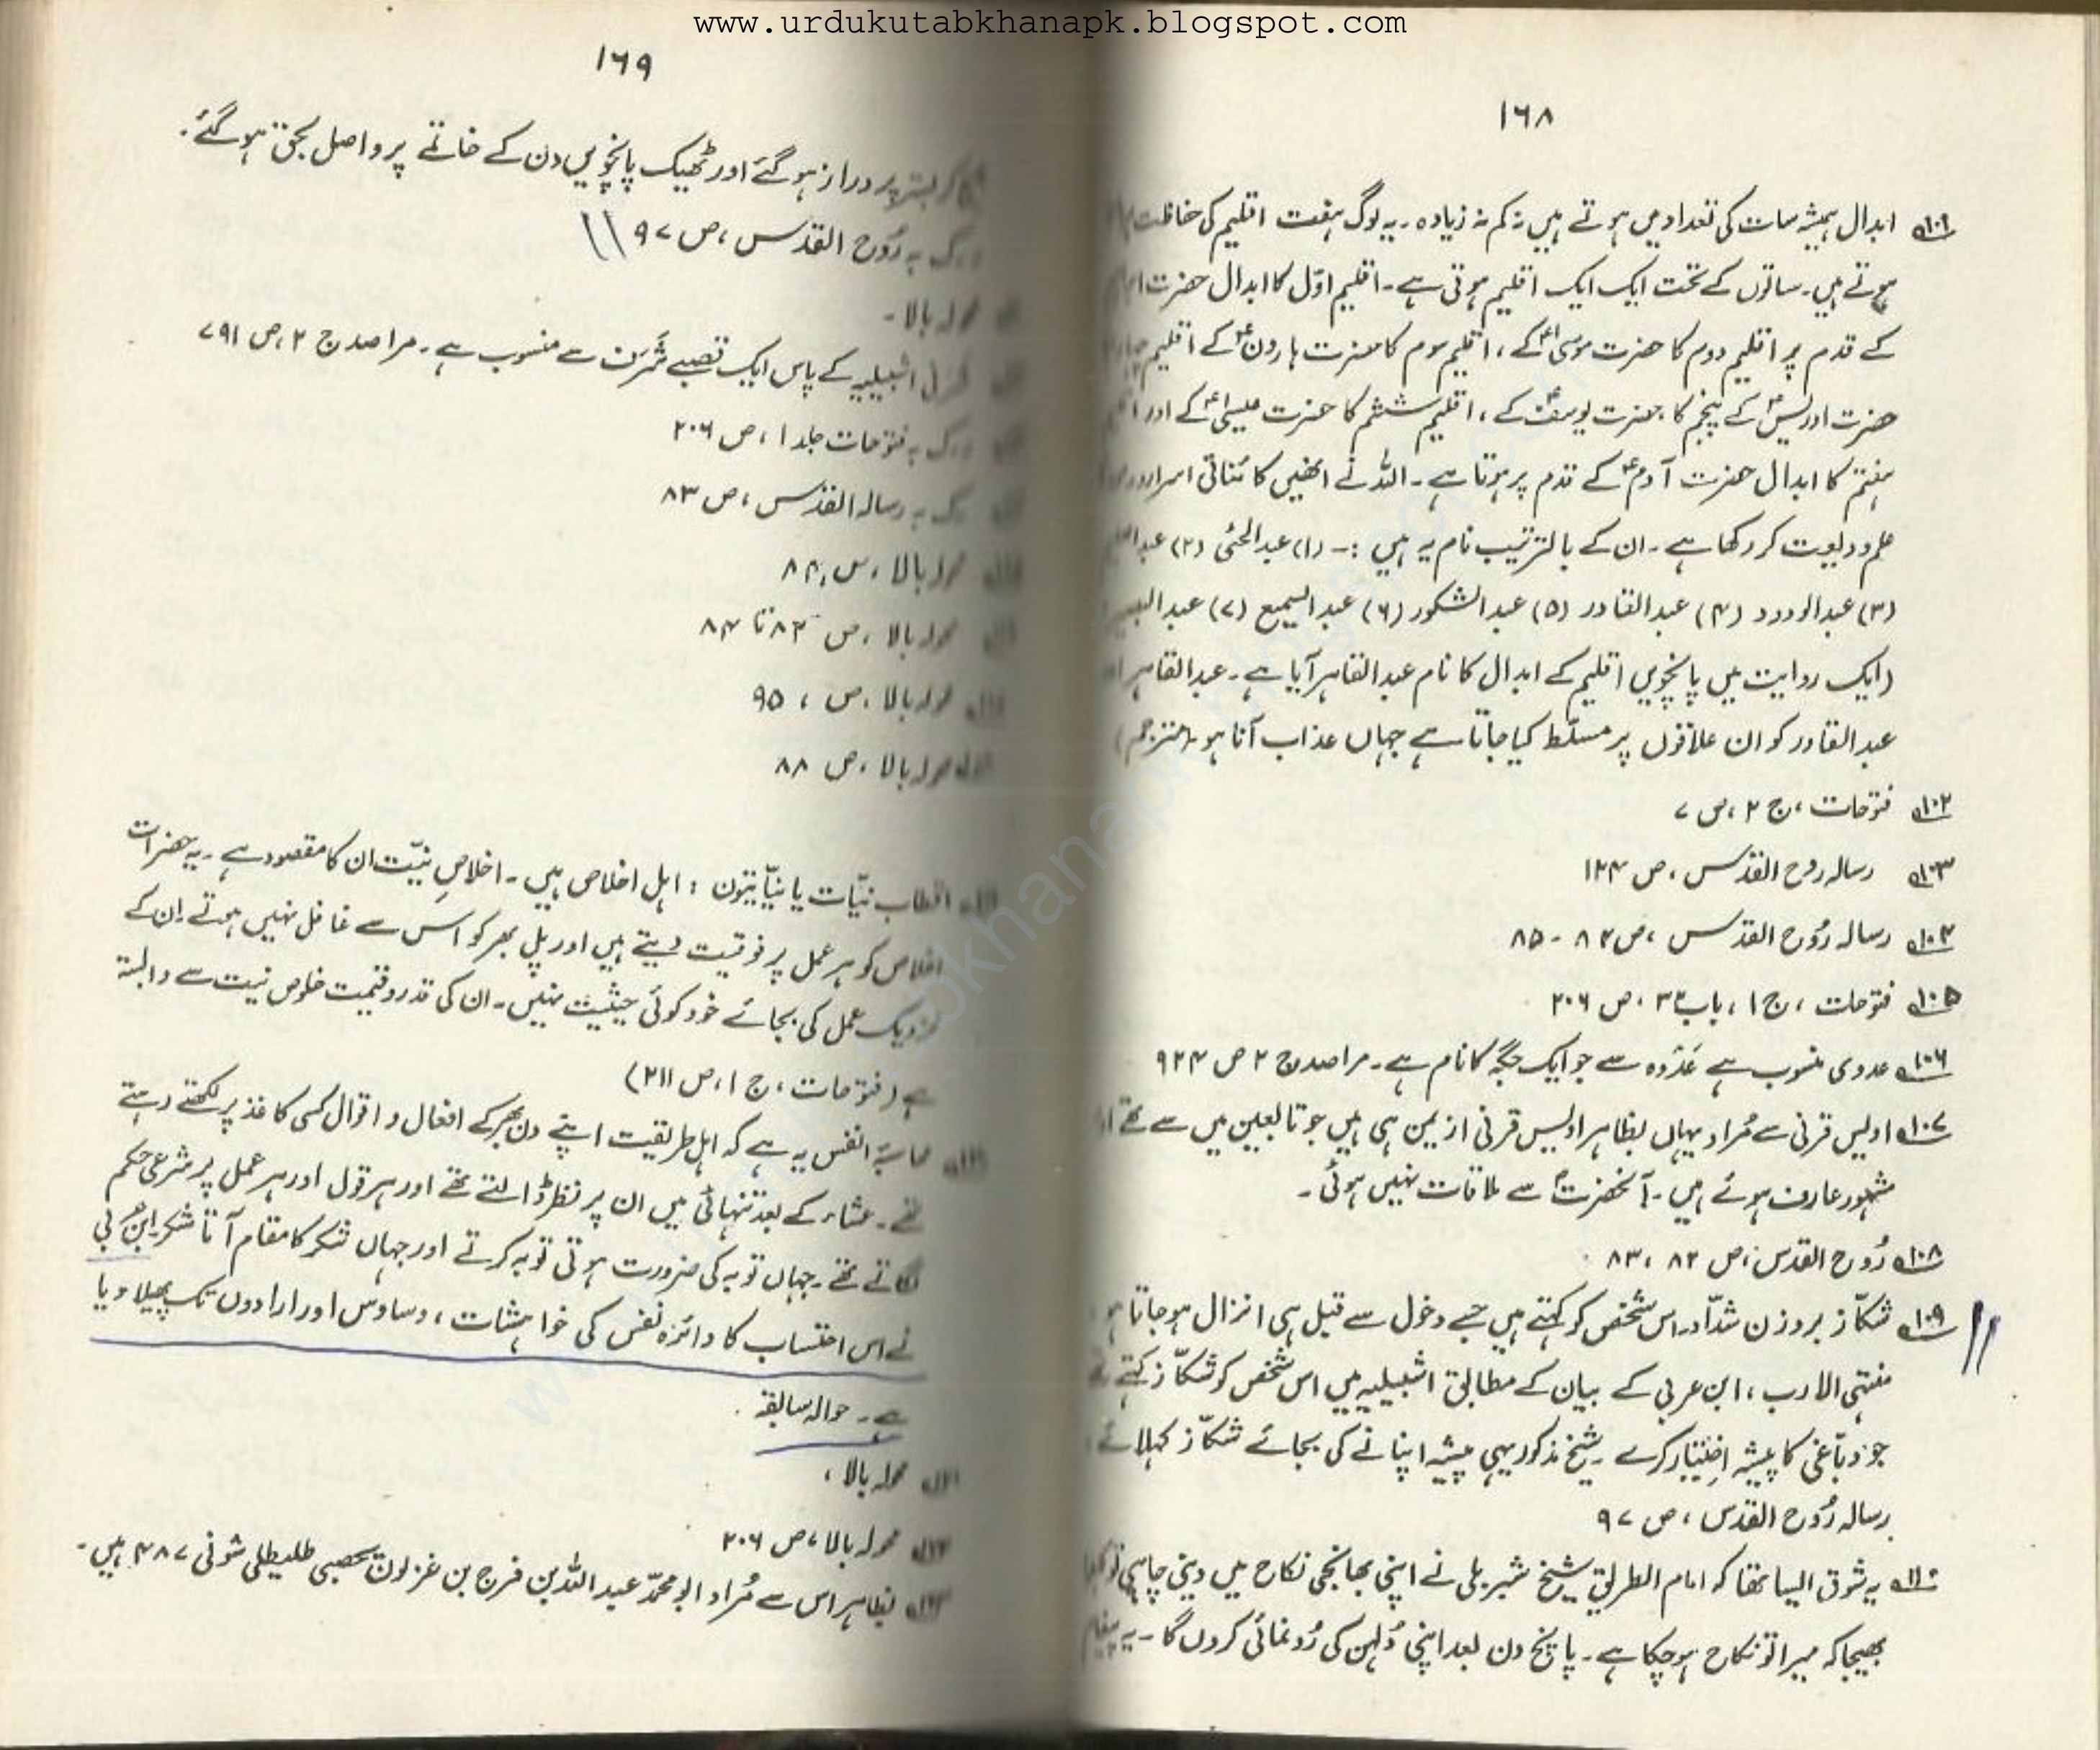 www.urdukutabkhanapk.blogspot.com
۱۶۸
۱۰۱ ابدال ہمیشہ سات کی تعداد میں ہوتے ہیں نہ کم نہ زیادہ۔ یہ لوگ ہفت اقلیم کی حفاظت
ہوتے ہیں۔ ساتوں کے تحت ایک ایک اقلیم ہوتی ہے۔ اقلیم اوّل کا ابدال حضرت
کے قدم پر اقلیم دوم کا حضرت موسیٰؑ کے، اقلیم سوم کا حضرت ہارونؑ کے اقلیم
حضرت ادریسؑ کے پنجم کا، حضرت یوسفؑ کے، اقلیم ششم کا حضرت عیسیٰؑ کے اور
ہفتم کا ابدال حضرت آدمؑ کے قدم پر ہوتا ہے۔ اللہ نے انھیں کائناتی اسرار و
علم ودلیت کر رکھا ہے۔ ان کے بالترتیب نام یہ ہیں :۔ (۱) عبدالحئی (۲)
(۳) عبدالودود (۴) عبدالقادر (۵) عبدالشکور (۶) عبدالسمیع (۷) عبدالبصیر
(ایک روایت میں پانچویں اقلیم کے ابدال کا نام عبدالقاہر آیا ہے۔ عبدالقاہر
عبدالقادر کو ان علاقوں پر مسلّط کیا جاتا ہے جہاں عذاب آنا ہو۔ (مترجم)
۱۰۲ فتوحات، ج ۲، ص ۷
۱۰۳ رسالہ روح القدس، ص ۱۲۴
۱۰۴ رسالہ رُوح القدس، ص ۸۴ - ۸۵
۱۰۵ فتوحات، ج ۱، باب ۳۳، ص ۲۰۶
۱۰۶ عدوی منسوب ہے عَدْوہ سے جو ایک جگہ کا نام ہے۔ مراصد ج ۲ ص ۹۲۴
۱۰۷ اویس قرنی سے مُراد یہاں بظاہر اویس قرنی از یمن ہی ہیں جو تابعین میں سے تھے
مشہور عارف ہوئے ہیں۔ آنحضرتؐ سے ملاقات نہیں ہوئی۔
۱۰۸ رُوح القدس، ص ۸۲، ۸۳
۱۰۹ شکّاز بروزن شدّاد۔ اس شخص کو کہتے ہیں جسے دخول سے قبل ہی انزال ہوجاتا ہو
منتہی الارب، ابن عربی کے بیان کے مطابق اشبیلیہ میں اس شخص کو شکّاز کہتے
جو دبّاغی کا پیشہ اختیار کرے۔ شیخ مذکور یہی پیشہ اپنانے کی بجائے شکّاز کہلائے
رسالہ رُوح القدس، ص ۹۷
۱۱۰ یہ شوق ایسا تھا کہ امام الطریق شیخ شبربلی نے اپنی بھانجی نکاح میں دینی چاہی تو
بھیجا کہ میرا تو نکاح ہوچکا ہے۔ پانچ دن بعد اپنی دُلہن کی رُونمائی کروں گا۔ یہ پیغام
۱۶۹
کر بستر پر دراز ہوگئے اور ٹھیک پانچویں دن کے خاتمے پر واصل بحق ہوگئے۔
ر۔ک بہ رُوح القدس، ص ۹۷
محولہ بالا۔
اشبیلیہ کے پاس ایک قصبے شَرَف سے منسوب ہے۔ مراصد ج ۲، ص ۷۹۱
ر۔ک بہ فتوحات جلد ۱، ص ۲۰۶
ر۔ک بہ رسالہ القدس، ص ۸۳
محولہ بالا، ص ۸۴
محولہ بالا، ص ۸۳ تا ۸۴
محولہ بالا، ص، ۹۵
محولہ بالا، ص ۸۸
اقطاب نیّات یا نیّاتیّون : اہل اخلاص ہیں۔ اخلاصِ نیّت ان کا مقصود ہے۔ یہ حضرات
اخلاص کو ہر عمل پر فوقیت دیتے ہیں اور پل بھر کو اس سے غافل نہیں ہوتے ان کے
نزدیک عمل کی بجائے خود کوئی حیثیت نہیں۔ ان کی قدر و قیمت خلوص نیت سے وابستہ
ہے (فتوحات، ج ۱، ص ۲۱۱)
محاسبۃ النفس یہ ہے کہ اہل طریقت اپنے دن بھر کے افعال و اقوال کسی کاغذ پر لکھتے رہتے
تھے۔ عشاء کے بعد تنہائی میں ان پر نظر ڈالتے تھے اور ہر قول اور ہر عمل پر شرعی حکم
لگاتے تھے۔ جہاں توبہ کی ضرورت ہوتی توبہ کرتے اور جہاں شکر کا مقام آتا شکر۔ ابن عربی
نے اس احتساب کا دائرہ نفس کی خواہشات، وساوس اور ارادوں تک پھیلا دیا
ہے۔ حوالہ سابقہ
محولہ بالا،
محولہ بالا، ص ۲۰۶
بظاہر اس سے مُراد ابو محمّد عبداللہ بن فرج بن غزلون یحصبی طلیطلی متوفی ۴۸۷ ہیں۔